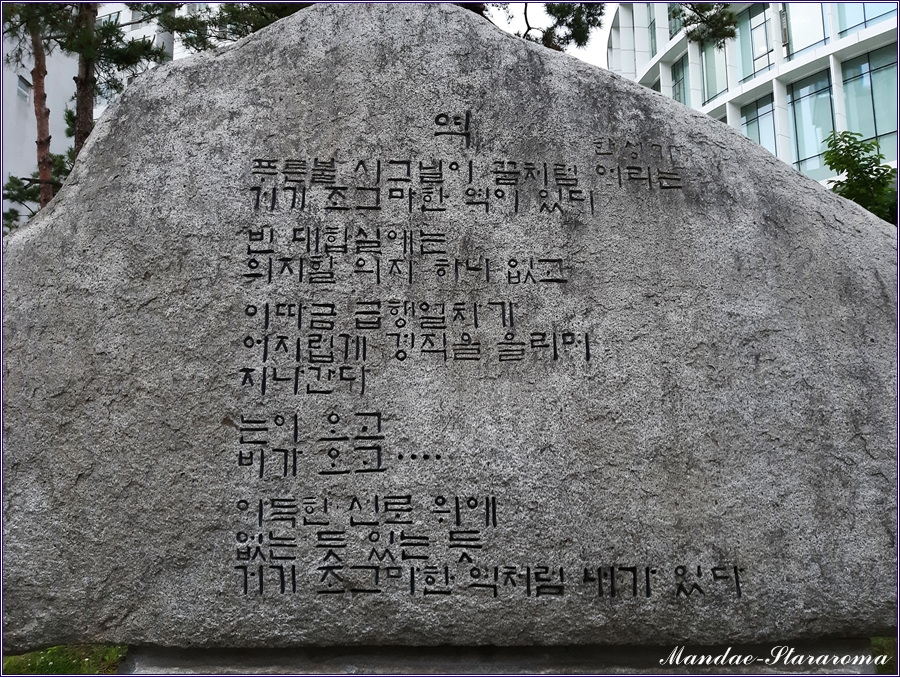 역
한성기
푸른불 시그널이 꿈처럼 어리는
거기 조그마한 역이 있다
빈 대합실에는
의지할 의자 하나 없고
이따금 급행열차가
어지럽게 경적을 울리며
지나간다
눈이 오고
비가 오고 ·····
아득한 선로 위에
없는 듯 있는 듯
거기 조그마한 역처럼 내가 있다
Mandae-Stararoma